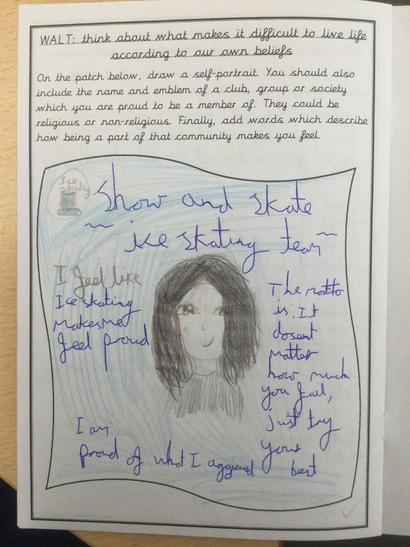 WALT: think about what makes it difficult to live life
according to our own beliefs
On the patch below, draw a self-portrait. You should also
include the name and emblem of a club, group or society
which you are proud to be a member of. They could be
religious or non-religious. Finally, add words which describe
how being a part of that community makes you feel.
Ice
Show and Skate
~ ice skating team ~
I feel like
Ice skating
makes me
feel proud
The motto
is: It
dosent
matter
how much
you fail,
just try
your
best
I am
proud of what I